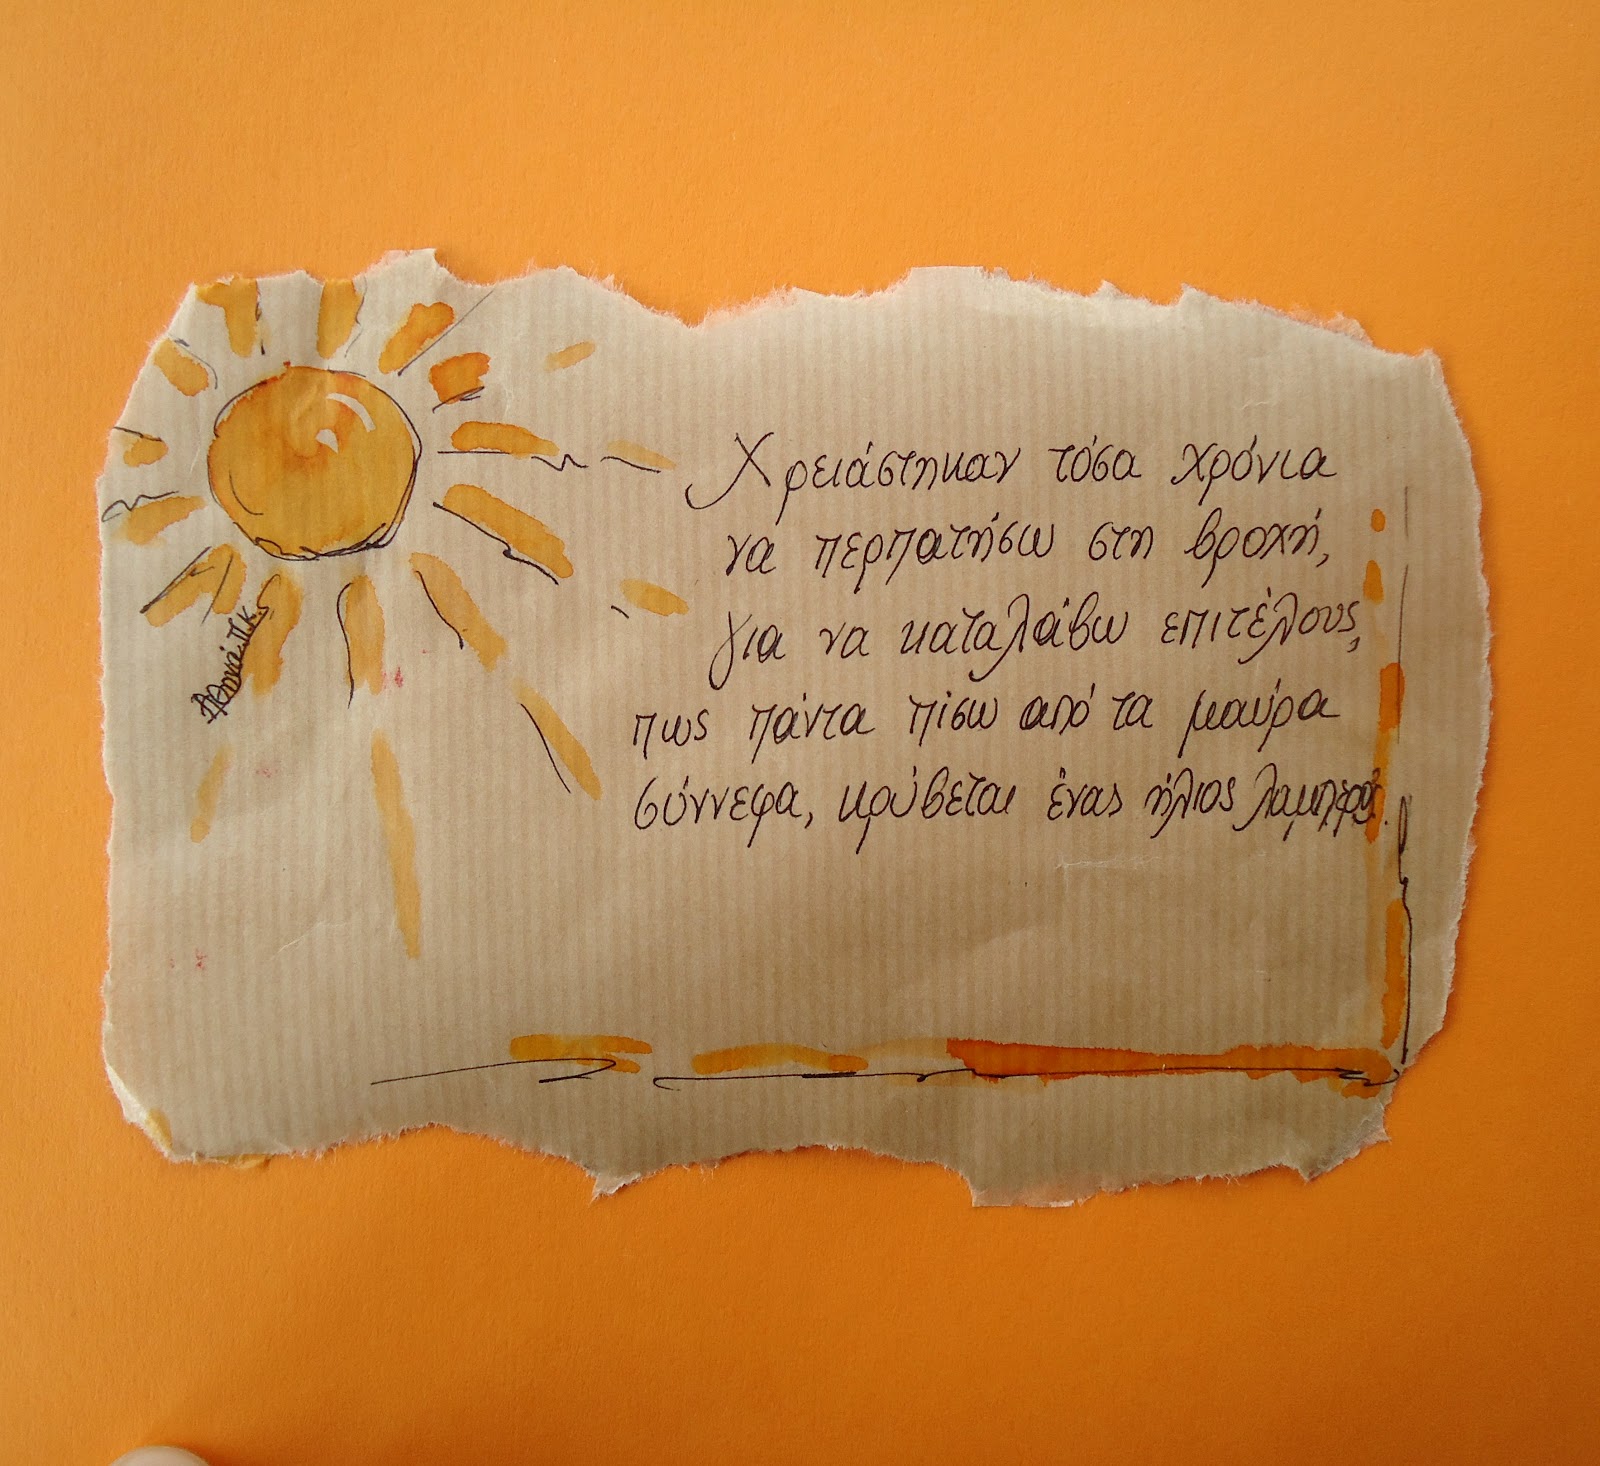 Χρειάστηκαν τόσα χρόνια
να περπατήσω στη βροχή,
για να καταλάβω επιτέλους,
πως πάντα πίσω από τα μαύρα
σύννεφα, κρύβεται ένας ήλιος λαμπερός.